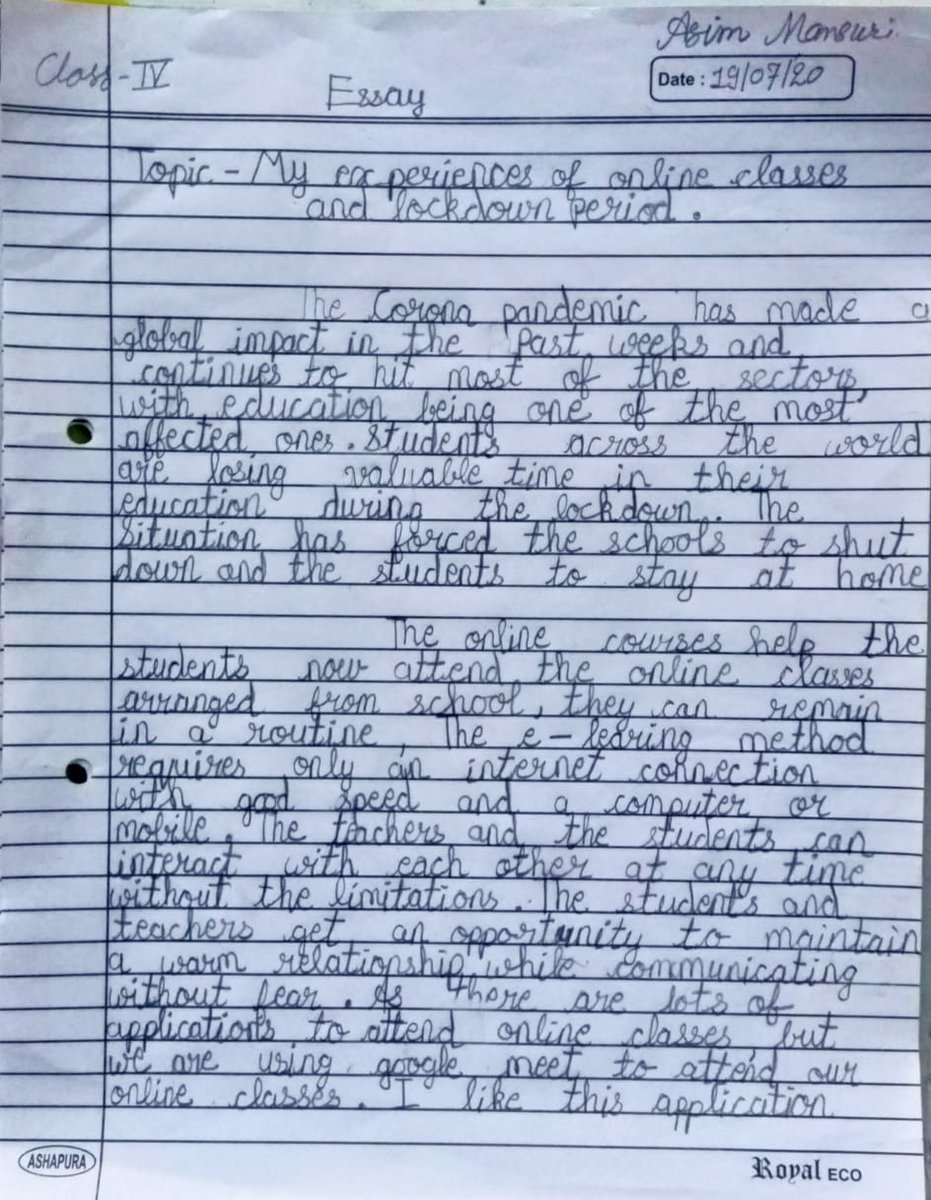 Asim Mansuri
Class-IV
Date : 19/07/20
Essay
Topic - My experiences of online classes
and lockdown period.
The Corona pandemic has made a
global impact in the Past weeks and
continues to hit most of the sectors,
with education being one of the most
affected ones. Students across the world
are losing valuable time in their
education during the lockdown. The
Situation has forced the schools to shut
down and the students to stay at home
The online courses help the
students now attend the online classes
arranged from school, they can remain
in a routine, The e-learing method
requires only an internet connection
with good speed and a computer or
mobile. The teachers and the students can
interact with each other at any time
without the limitations. The students and
teachers get an opportunity to maintain
a warm relationship while communicating
without fear. As there are lots of
applications to attend online classes, but
we are using google meet to attend our
online classes. I like this application
ASHAPURA
Royal ECO